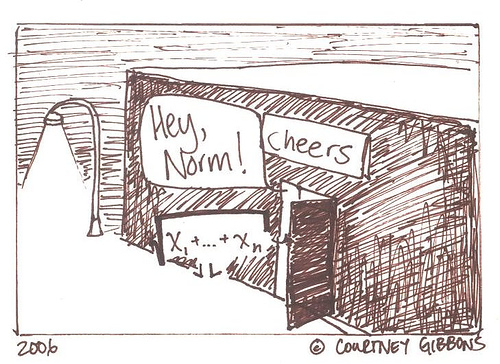 Hey,
Norm!
cheers
x₁+...+xₙ
2006
© COURTNEY GIBBONS